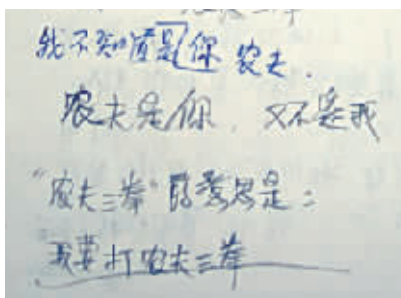 我不知道是你农夫.
农夫是你,又不是我
"农夫三拳"的意思是:
我要打农夫三拳